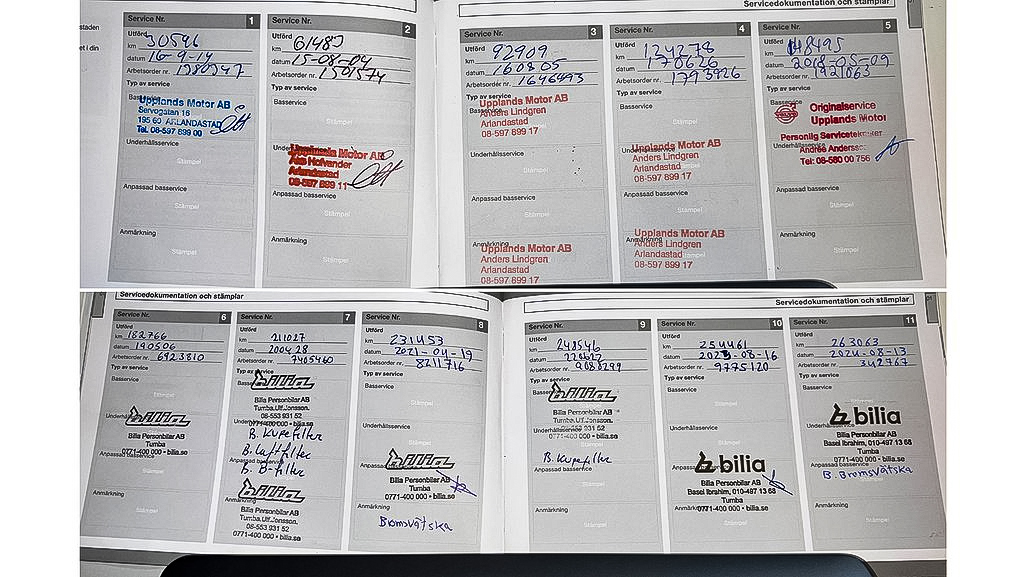 Servicedokumentation och stämplar
Service Nr. 1
Utförd
km 30596
datum 16-9-14
Arbetsorder nr.
Typ av service
Basservice
Upplands Motor AB
Servogatan 16
195 60 ARLANDASTAD
Tel. 08-597 699 00
Underhållsservice
Stämpel
Anpassad basservice
Stämpel
Anmärkning
Stämpel
Service Nr. 2
Utförd
km
datum 15-08-04
Arbetsorder nr. 1501574
Typ av service
Basservice
Stämpel
Upplands Motor AB
Åke Hofvander
Arlandastad
08-597 899 11
Anpassad basservice
Stämpel
Anmärkning
Stämpel
Service Nr. 3
Utförd
km 92909
datum 160805
Arbetsorder nr. 1646493
Typ av service
Basservice
Upplands Motor AB
Anders Lindgren
Arlandastad
08-597 899 17
Underhållsservice
Stämpel
Anpassad basservice
Stämpel
Anmärkning
Upplands Motor AB
Anders Lindgren
Arlandastad
08-597 899 17
Service Nr. 4
Utförd
km 134278
datum 170626
Arbetsorder nr. 1793926
Typ av service
Basservice
Stämpel
Upplands Motor AB
Anders Lindgren
Arlandastad
08-597 899 17
Anpassad basservice
Stämpel
Anmärkning
Upplands Motor AB
Anders Lindgren
Arlandastad
08-597 899 17
Service Nr. 5
Utförd
km
datum 2018-05-09
Arbetsorder nr. 1921063
Typ av service
Basservice
Originalservice
Upplands Motor
Personlig Servicetekniker
Andreé Andersson
Tel: 08-580 00 756
Anpassad basservice
Stämpel
Anmärkning
Stämpel
Servicedokumentation och stämplar
Servicedokumentation och stämplar
Service Nr. 6
Utförd
km 182766
datum 190506
Arbetsorder nr. 6923810
Typ av service
Basservice
Underhållsservice
bilia
Bilia Personbilar AB
Tumba
0771-400 000 • bilia.se
Anpassad basservice
Stämpel
Anmärkning
Stämpel
Service Nr. 7
Utförd
km 211027
datum 200428
Arbetsorder nr. 7405460
Typ av service
Basservice
bilia
Bilia Personbilar AB
Tumba.Ulf.Jonsson.
08-553 931 52
0771-400 000 • bilia.se
B. Kupefilter
B. Luftfilter
Anpassad basservice
B. B-filter
bilia
Anmärkning
Bilia Personbilar AB
Tumba.Ulf.Jonsson.
08-553 931 52
0771-400 000 • bilia.se
Service Nr. 8
Utförd
km 231453
datum 2021-04-19
Arbetsorder nr. 8211716
Typ av service
Basservice
Stämpel
Underhållsservice
bilia
Anpassad basservice
Bilia Personbilar AB
Tumba
0771-400 000 • bilia.se
Anmärkning
Bromsvätska
Service Nr. 9
Utförd
km 248546
datum 220622
Arbetsorder nr. 9088299
Typ av service
Basservice
bilia
Bilia Personbilar AB
Tumba.Ulf.Jonsson.
08-553 931 52
Underhållsservice
0771-400 000 • bilia.se
B. Kupefilter
Anpassad basservice
Stämpel
Anmärkning
Stämpel
Service Nr. 10
Utförd
km 254461
datum 2023-08-16
Arbetsorder nr. 9775120
Typ av service
Basservice
Stämpel
Underhållsservice
bilia
Bilia Personbilar AB
Basel Ibrahim, 010-497 13 68
Tumba
Anmärkning
0771-400 000 • bilia.se
Stämpel
Service Nr. 11
Utförd
km 263063
datum 2024-08-13
Arbetsorder nr. 342767
Typ av service
Basservice
Stämpel
bilia
Bilia Personbilar AB
Basel Ibrahim, 010-497 13 68
Tumba
0771-400 000 • bilia.se
Anpassad basservice
B. Bromsvätska
Anmärkning
Stämpel